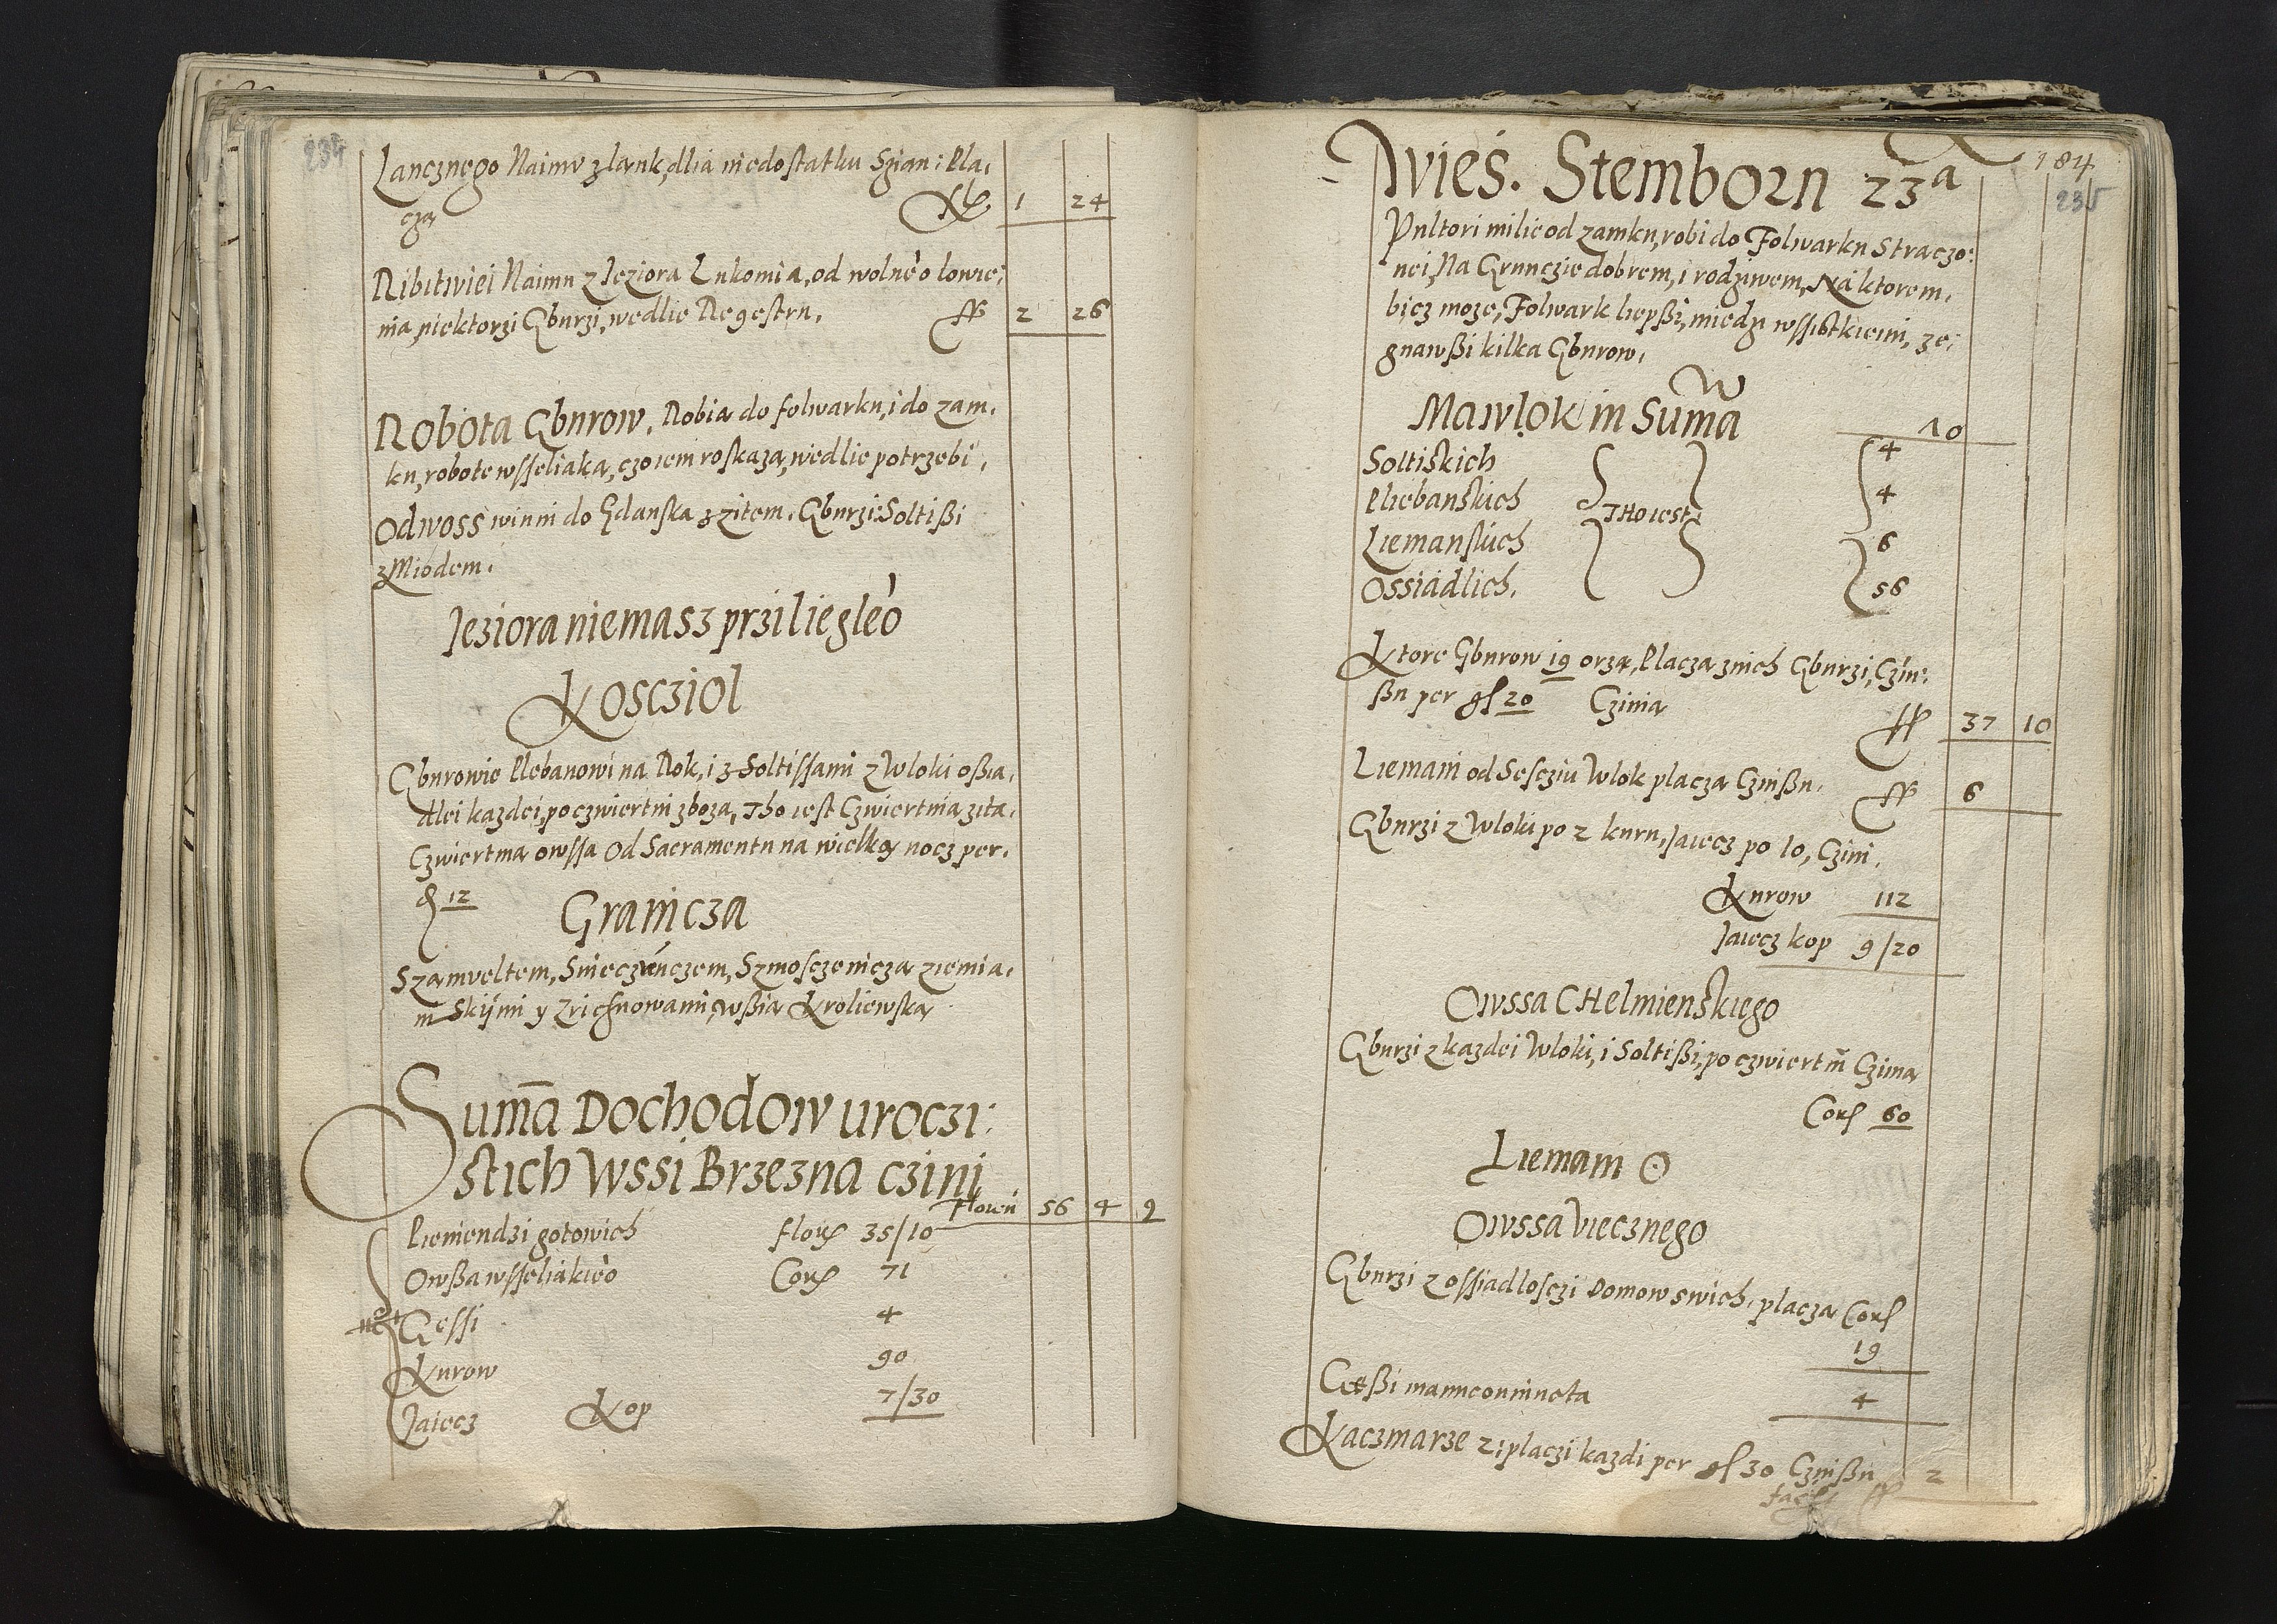 234
Lancznego Naimu z lank, dlia niedostatku Szian: Pla,
cza fl. 1 24
Ribitwiei Naimu z Jeziora Lukomia, od wolneo lowie,
nia niektorzi Gburzi, wedlie Regestru, ff 2 26
Robota Gburow, Robia do folwarku, i do zam,
ku, robote wsseliaka, czo iem roskaza, wedlie potrzebi,
Odwoss winni do Gdanska z zitem. Gburzi: Soltißi
z Miodem.
Jeziora niemasz prziliegleo
Kosciol
Gburowie Plebanowi na Rok, i z Soltissami z Wloki oßia,
dlei kazdei, po czwiertni zboza, Tho iest Czwiertnia zita,
Czwiertnia owssa Od Sacramentu na wielka nocz per,
g 12
Granicza
Szamveltem, Szmosczenicza ziemia,
nskijmi y wßia Kroliewska
Suma Dochodow uroczi:
stich Wssi Brzezna czini
Floren 56 4 9
Pieniendzi gotowich flor 35/10
Owßa wsseliakieo Cor 71
Gessi 4
Kurow 90
Jaiecz Kop 7/30
184
235
Wies. Stemborn 23a
Pultori milie od zamku, robi do Folwarku Straczo:
nei, Na Grunczie dobrem, i rodziwem, Na ktorem,
bicz moze, Folwark liepßi, miedzi wssistkiemi, ze,
gnawßi kilka Gburow,
Ma wlok in Suma 70
Soltiskich 4
Pliebanskich 4
THo iest
Liemanskich 6
Ossiadlich. 56
Ktore Gburow 19 orza, Placza znich Gburzi, Czin,
ßu per gl 20 Czinia ff 37 10
Liemani od Sesciu Wlok placza Czinßu. ff 6
Gburzi z Wloki po 2 kuru, Jaiecz po 10, Czini,
Kurow 112
Jaiecz kop 9/20
Owssa CHelmienskiego
Gburzi z kazdei Wloki, i Soltißi, po czwiertni Czinia
Cor 60
Liemani O
Owssa Viecznego
Gburzi z ossiadlosczi Domow swich, placza Cor
19
Gęßi 4
Kaczmarze 2: placzi kazdi per gl 30 Czinßu ff 2